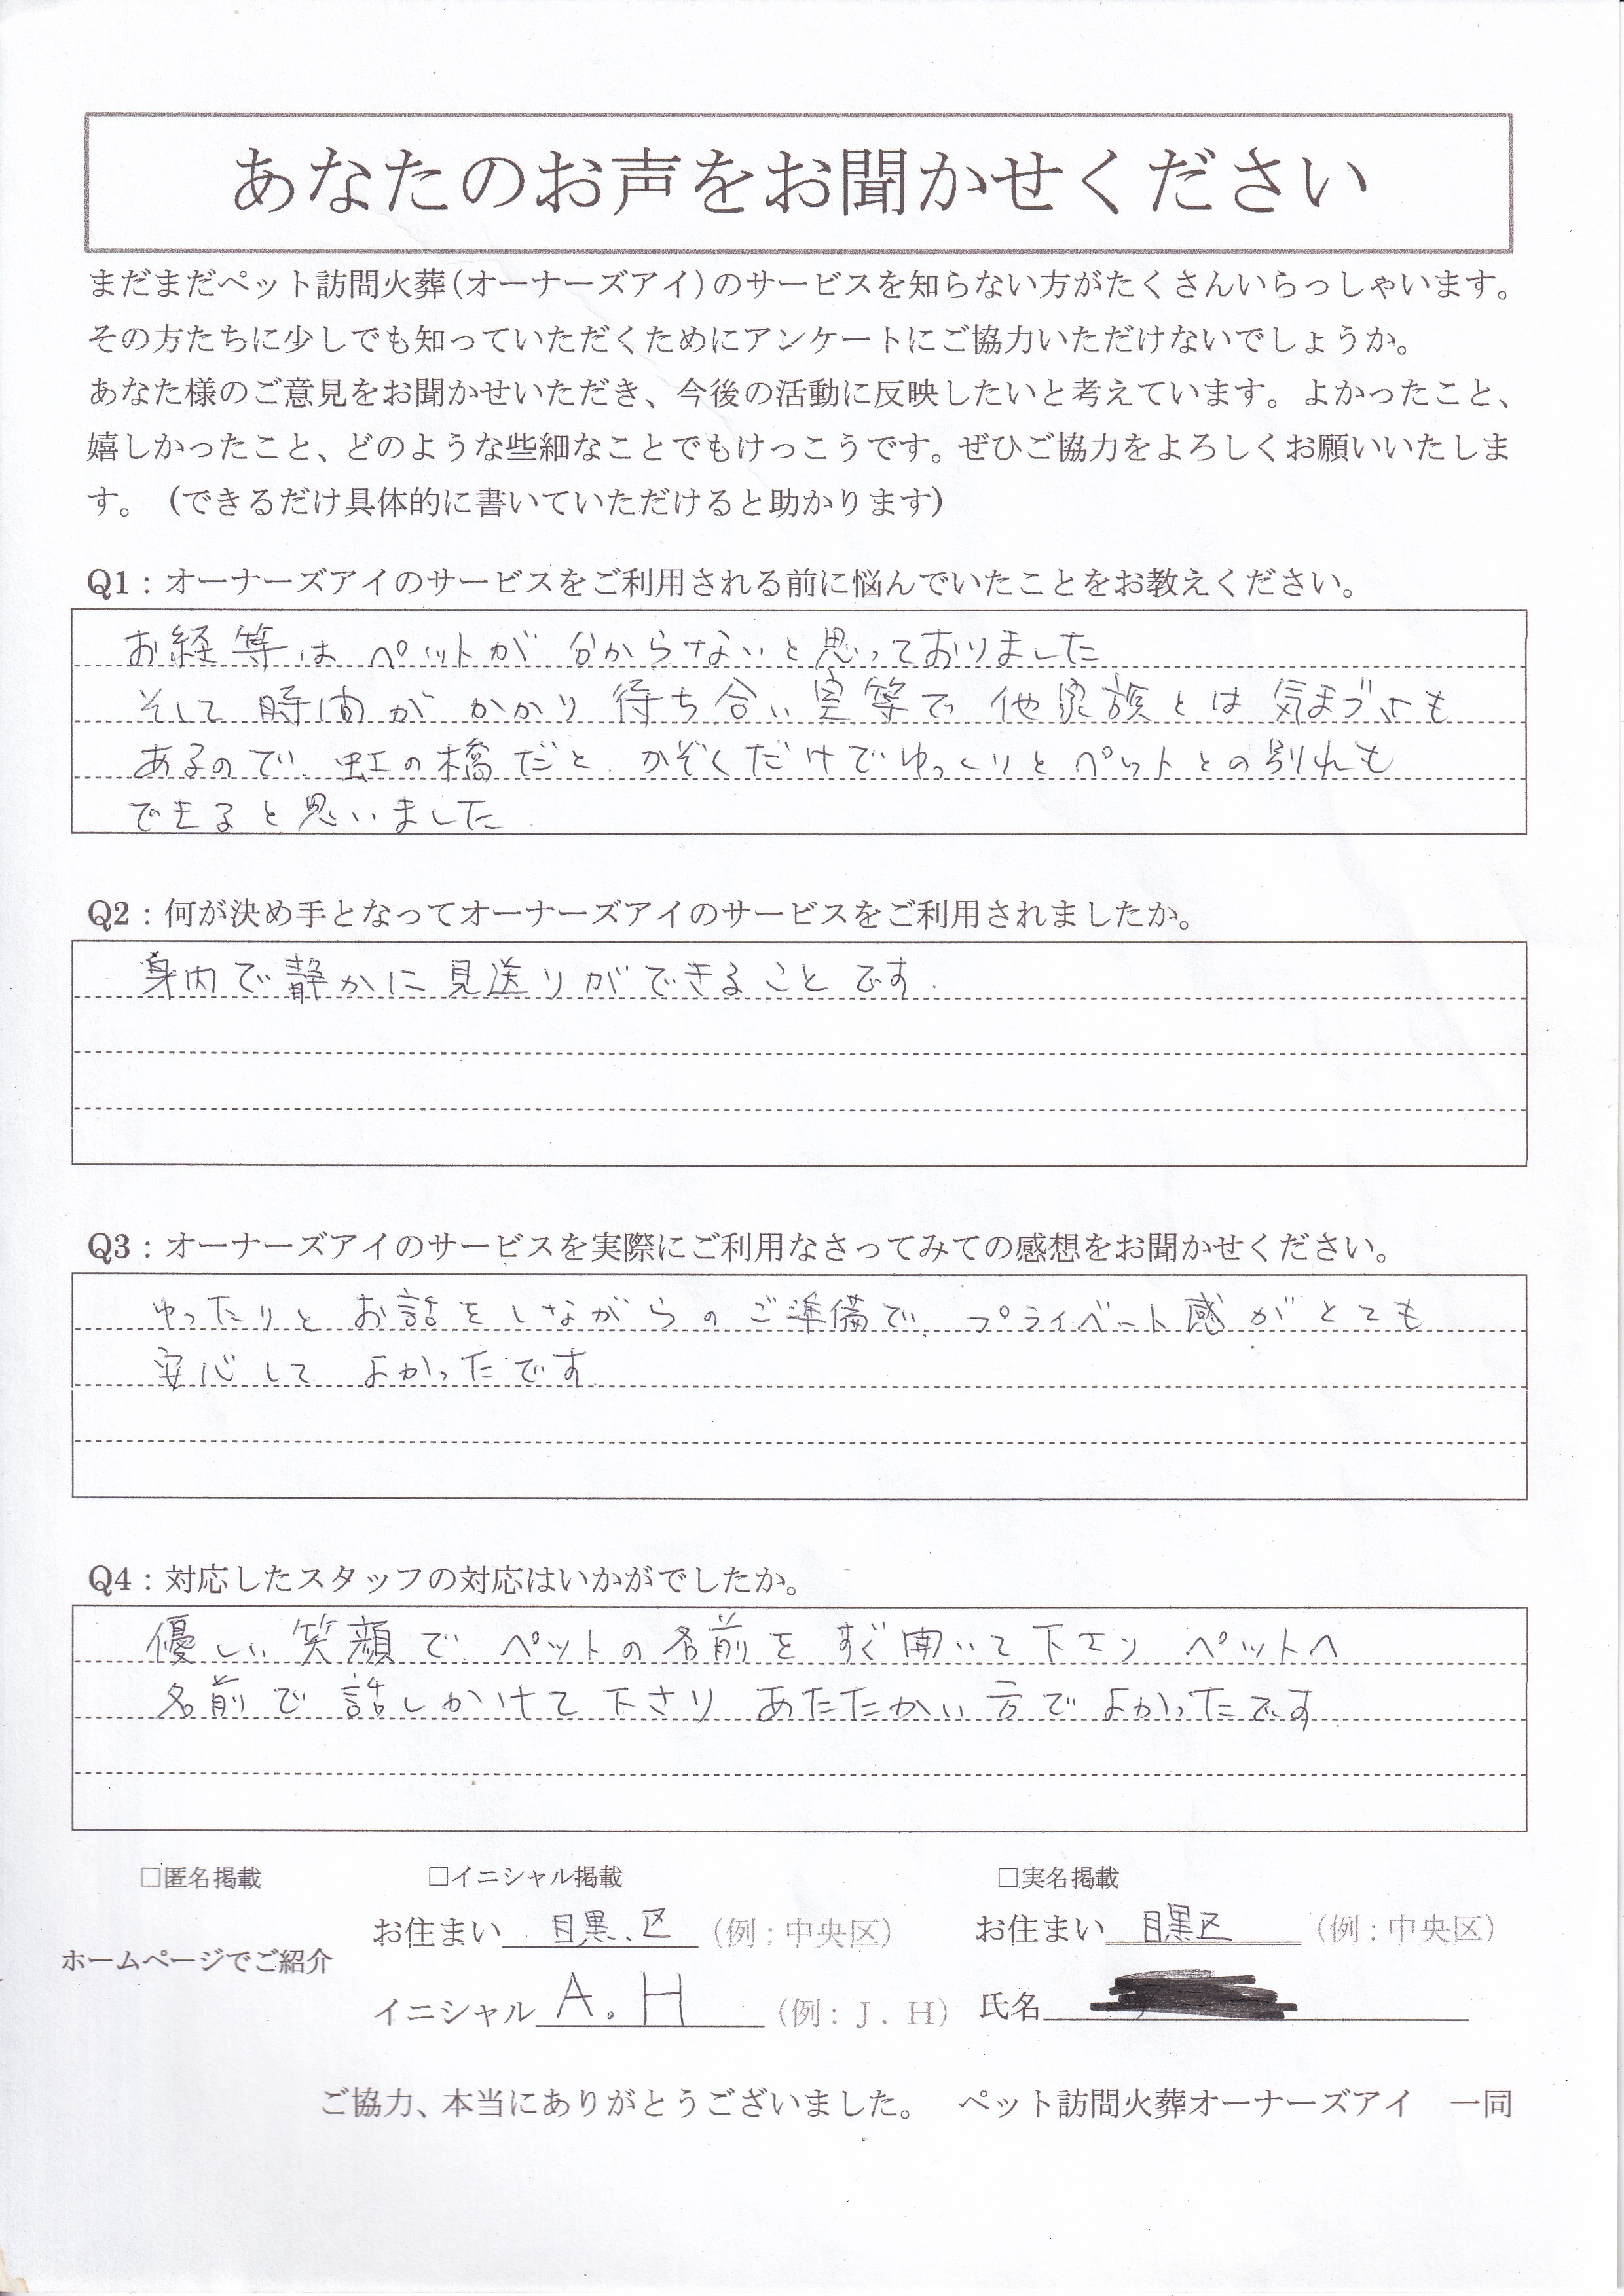 あなたのお声をお聞かせください
まだまだペット訪問火葬(オーナーズアイ)のサービスを知らない方がたくさんいらっしゃいます。
その方たちに少しでも知っていただくためにアンケートにご協力いただけないでしょうか。
あなた様のご意見をお聞かせいただき、今後の活動に反映したいと考えています。よかったこと、
嬉しかったこと、どのような些細なことでもけっこうです。ぜひご協力をよろしくお願いいたしま
す。（できるだけ具体的に書いていただけると助かります）
Q1：オーナーズアイのサービスをご利用される前に悩んでいたことをお教えください。
お経等は ペットが 分からないと思っておりました
そして 時間が かかり 待ち合い室等で 他家族とは 気まづさも
あるので、虹の橋だと かぞくだけでゆっくりとペットとの別れも
できると思いました
Q2：何が決め手となってオーナーズアイのサービスをご利用されましたか。
身内で静かに見送りができることです.
Q3：オーナーズアイのサービスを実際にご利用なさってみての感想をお聞かせください。
ゆったりと お話をしながらの ご準備で、プライベート感がとても
安心して よかったです
Q4：対応したスタッフの対応はいかがでしたか。
優しい笑顔で ペットの名前を すぐ聞いて下さり ペットへ
名前で 話しかけて下さり あたたかい方でよかったです.
□匿名掲載 □イニシャル掲載 □実名掲載
お住まい 目黒区 （例：中央区） お住まい 目黒区 （例：中央区）
ホームページでご紹介
イニシャル A.H （例：J．H） 氏名
ご協力、本当にありがとうございました。 ペット訪問火葬オーナーズアイ 一同